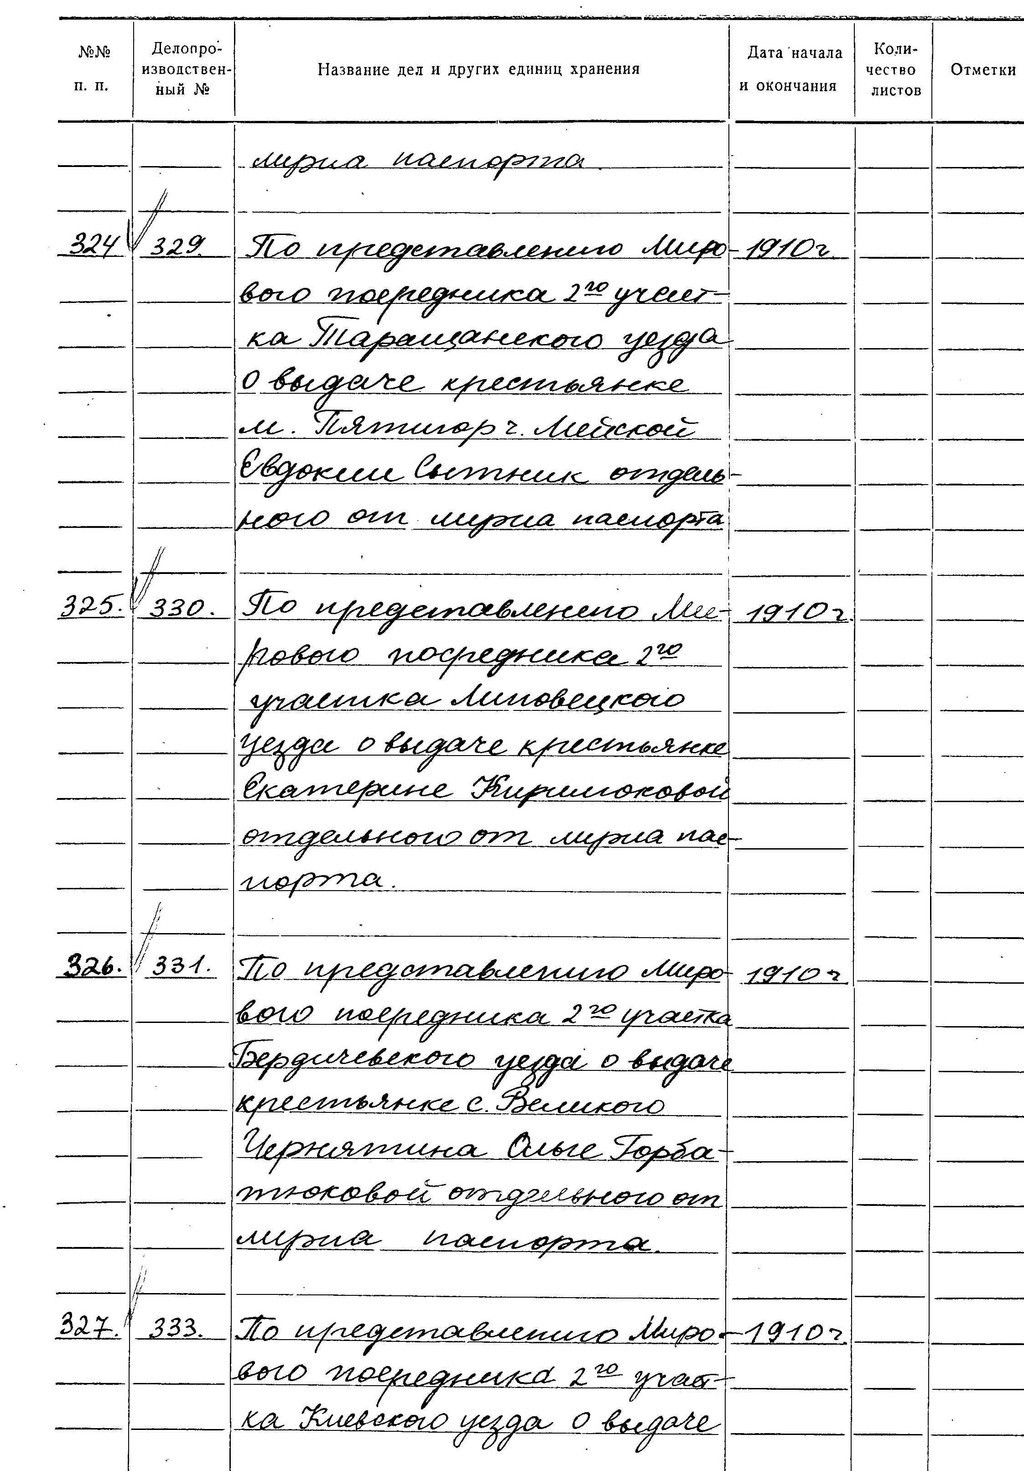 №№ п. п. Делопро- изводствен- ный № Название дел и других единиц хранения Дата начала и окончания Коли- чество листов Отметки
мужа паспорта
324 329. По представлению Миро- 1910 г.
вого посредника 2го участ-
ка Таращанского уезда
о выдаче крестьянке
м. Пятигор
Евдокии Сытник отдель-
ного от мужа паспорта
325. 330. По представлению Ми- 1910 г.
рового посредника 2го
участка Липовецкого
уезда о выдаче крестьянке
Екатерине
отдельного от мужа пас-
порта.
326. 331. По представлению Миро- 1910 г.
вого посредника 2го участка
Бердичевского уезда о выдаче
крестьянке с. Великого
Чернятина Ольге Горба-
тюковой отдельного от
мужа паспорта.
327. 333. По представлению Миро- 1910 г.
вого посредника 2го участ-
ка Киевского уезда о выдаче